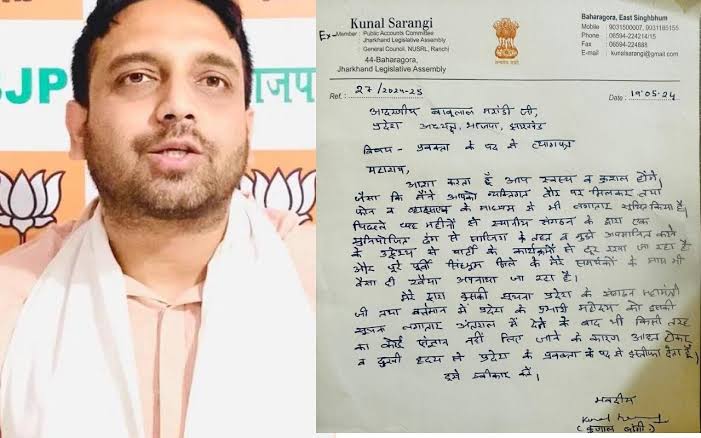 BJP
भाजपा
Kunal Sarangi
Ex-Member : Public Accounts Committee
Jharkhand Legislative Assembly
General Council, NUSRL, Ranchi
44-Baharagora,
Jharkhand Legislative Assembly
सत्यमेव जयते
Baharagora, East Singhbhum
Mobile : 9031500007, 9031185155
Phone : 06594-224214/15
Fax : 06594-224888
E-mail : kunalsarangi@gmail.com
Ref.: 27/2024-25
Date: 19.05.24
आदरणीय बाबूलाल मरांडी जी,
प्रदेश अध्यक्ष, भाजपा, झारखंड
विषय - प्रवक्ता के पद से त्यागपत्र
महाशय,
आशा करता हूँ आप स्वस्थ व कुशल होंगे।
जैसा कि मैंने आपको व्यक्तिगत तौर पर मिलकर तथा
फोन व के माध्यम से भी लगातार सूचित किया है।
पिछले महीनों से स्थानीय संगठन के द्वारा एक
सुनियोजित ढंग से साजिश के तहत व मुझे अपमानित करने
के उद्देश्य से पार्टी के कार्यक्रमों से दूर रखा जा रहा है
और पूरे पूर्वी सिंहभूम जिले के मेरे समर्थकों के साथ भी
वैसा ही रवैया अपनाया जा रहा है।
मेरे द्वारा इसकी सूचना प्रदेश के संगठन महामंत्री
जी तथा वर्तमान में प्रदेश के प्रभारी महोदय को इसकी
सूचना लगातार अंतराल में देने के बाद भी किसी तरह
का कोई संज्ञान नहीं लिए जाने के कारण आहत होकर
व दुखी हृदय से प्रदेश के प्रवक्ता के पद से इस्तीफा देता हूँ
इसे स्वीकार करें।
भवदीय
(कुणाल षाड़ंगी)